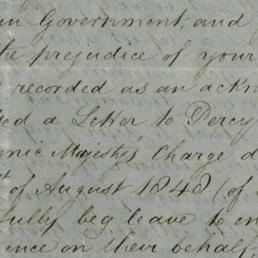 an Government, and
the prejudice of your
recorded as an ackn
ed a Letter to Percy
nic Majesty's Charge d
st of August 1848 (of
fully beg leave to en
ence on their behalf,